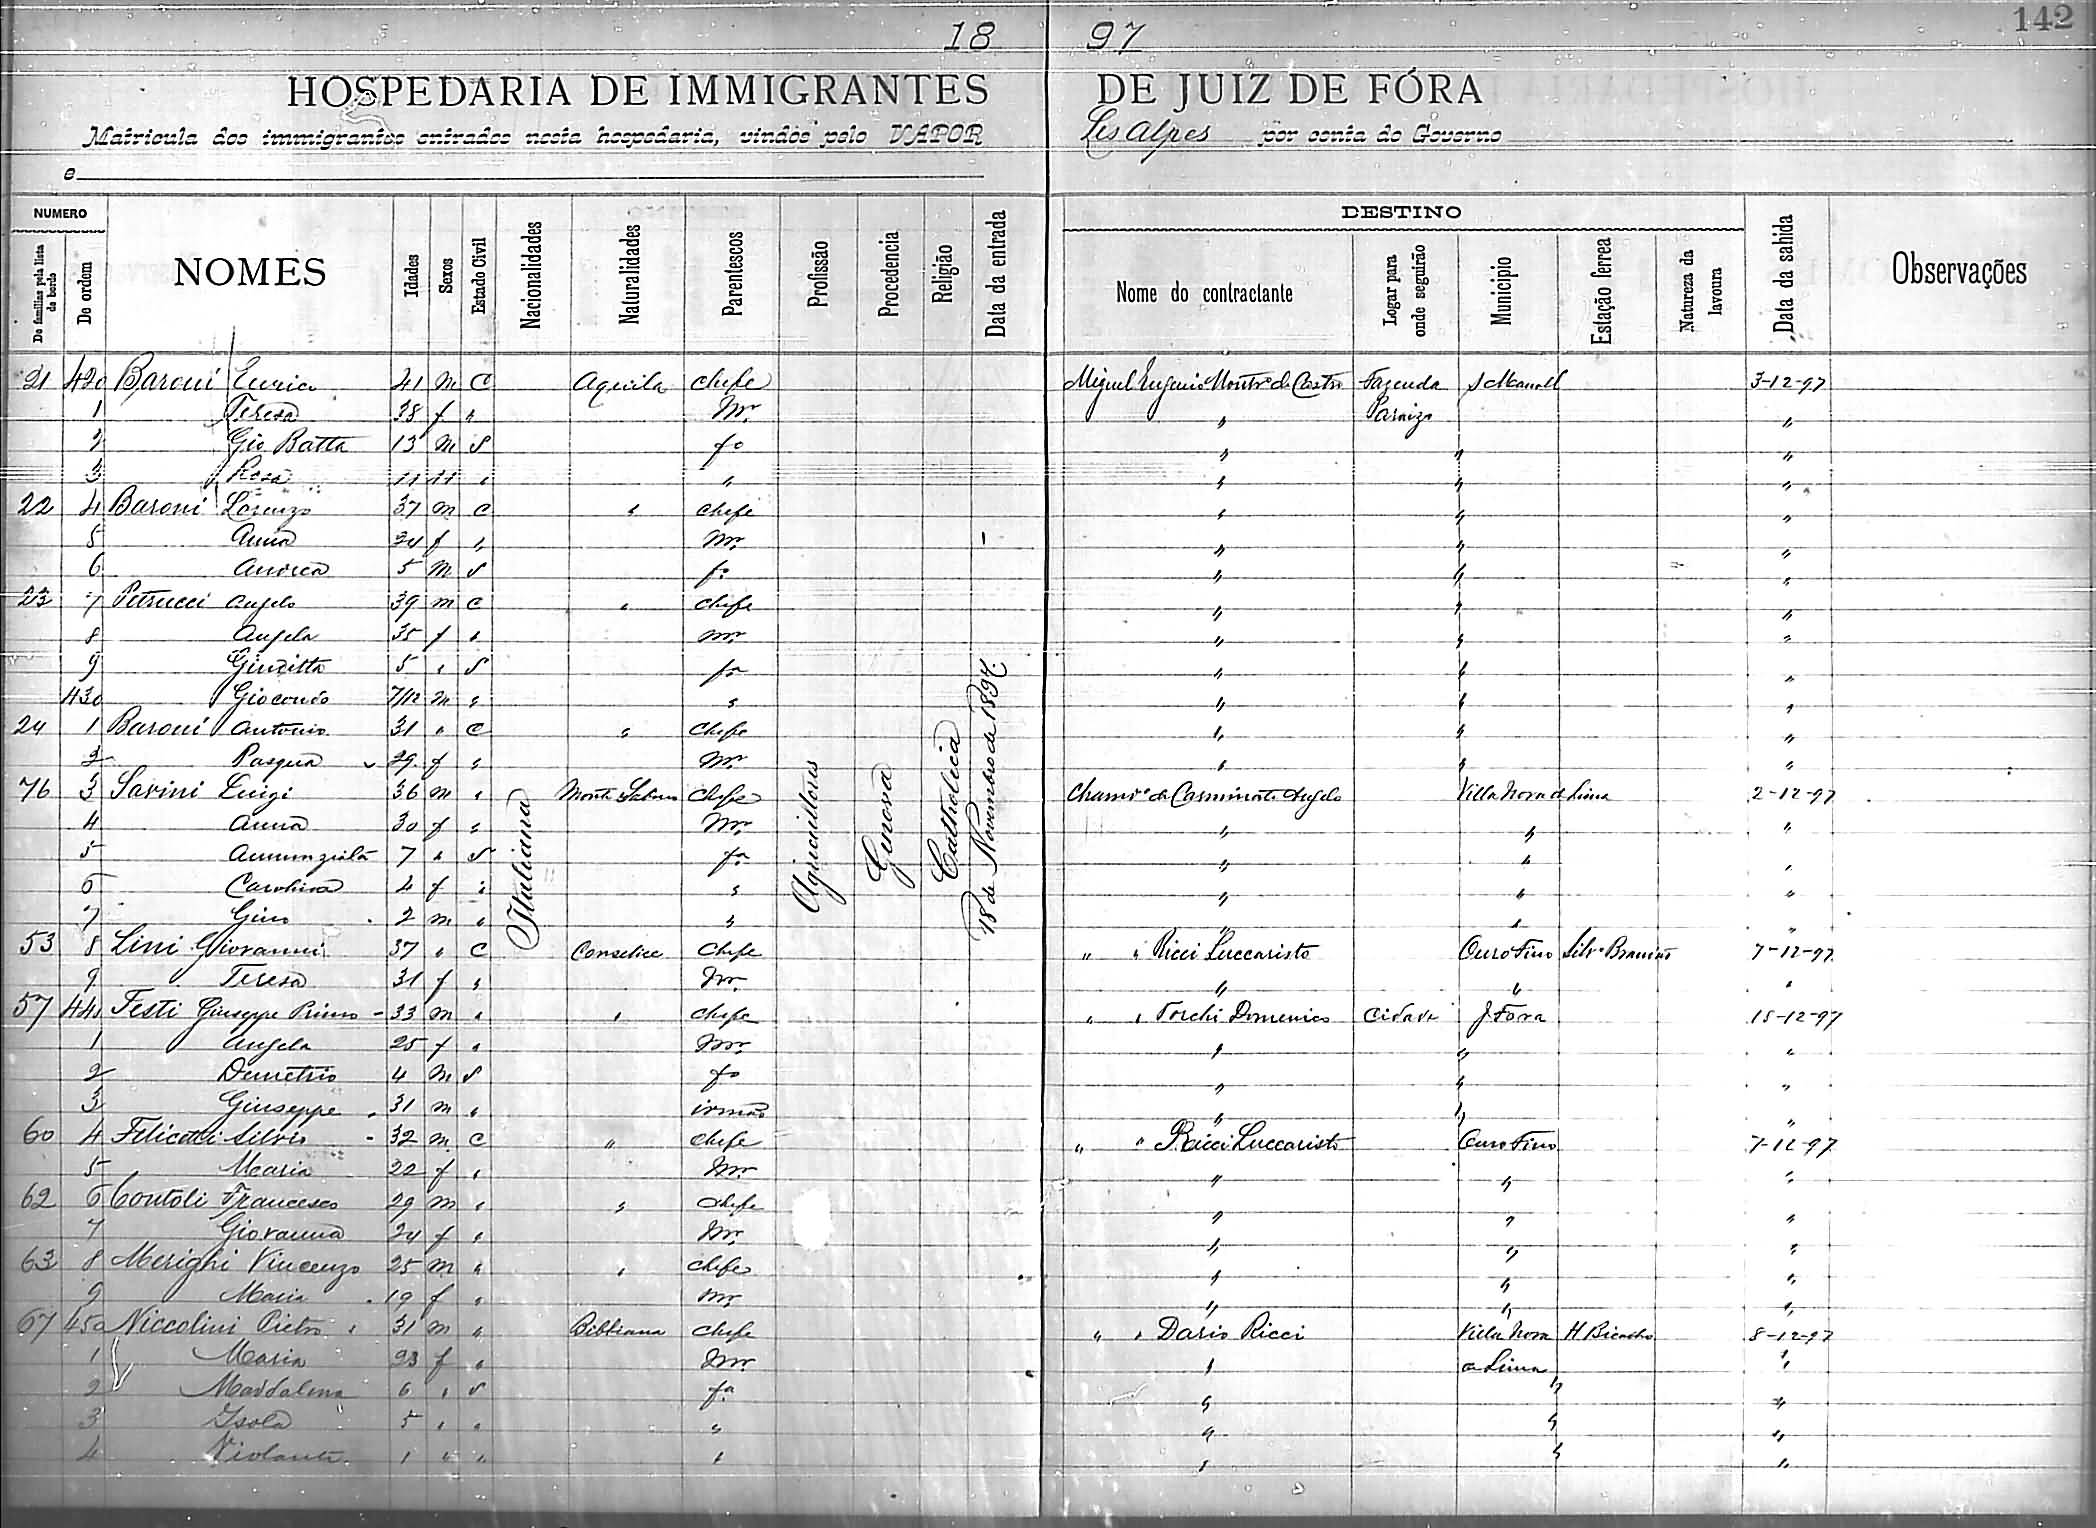 142
18 97
HOSPEDARIA DE IMMIGRANTES DE JUIZ DE FÓRA
Matricula dos immigrantes entrados nesta hospedaria, vindos pelo VAPOR Les Alpes por conta do Governo
e
NUMERO
De familias pela lista de bordo
De ordem
NOMES
Idades
Sexos
Estado Civil
Nacionalidades
Naturalidades
Parentescos
Profissão
Procedencia
Religião
Data da entrada
DESTINO
Nome do contractante
Logar para onde seguirão
Municipio
Estação ferrea
Natureza da lavoura
Data da sahida
Observações
Italiana
Agricultores
Genova
Catholica
18 de Novembro de 1897.
21 420 Baroni Enrico 41 m C Aquila chefe Miguel Eugenio Montr. de Castro Fazenda S Manoel 3-12-97
1 Teresa 38 f " Mr. " Paraizo "
2 Gio Batta 13 m S fo " " "
3 Rosa 11 " " " " "
22 4 Baroni Lorenzo 37 m C " chefe " " "
5 Anna 34 f " Mr. " " "
6 Andrea 5 m S fo " " "
23 7 Petrucci Angelo 39 m C " chefe " " "
8 Angela 35 f " mr. " " "
9 Giuditta 5 " S fa " " "
430 Giocondo 7/12 m " " " " "
24 1 Baroni Antonio 31 " C " chefe " " "
2 Pasqua 29 f " Mr. " " "
76 3 Savini Luigi 36 m " Monte chefe de Angelo Villa Nova d Lima 2-12-97
4 Anna 30 f " Mr. " " "
5 Annunziata 7 " S fa " " "
6 Carolina 4 f " " " " "
7 Gino 2 m " " " "
53 8 Lini Giovanni 37 " C Conselice Chefe " " Ricci Luccaristo Ouro Fino Silv. 7-12-97
9 Teresa 31 f " Mr. " " "
57 440 Festi Giuseppe Primo 33 m " " chefe " " Torchi Domenico Cidade J. Fora 15-12-97
1 Angela 25 f " Mr. " " "
2 Demetrio 4 m S fo " " "
3 Giuseppe 31 m " irmão " " "
60 4 Felicetti Silvio 32 m C " chefe " " Ricci Luccaristo Ouro Fino 7-12-97
5 Maria 22 f " Mr. " " "
62 6 Contoli Francesco 29 m " " chefe " " "
7 Giovanna 24 f " Mr. " " "
63 8 Merighi Vincenzo 25 m " " chefe " " "
9 Maria 19 f " Mr. " " "
67 450 Niccolini Pietro 31 m " Bibbiana chefe " " Dario Ricci Villa Nova H Bicalho 8-12-97
1 Maria 23 f " Mr. " a Lima "
2 Maddalena 6 " S fa " " "
3 Isola 5 " " " " " "
4 Violante 1 " " " " " "